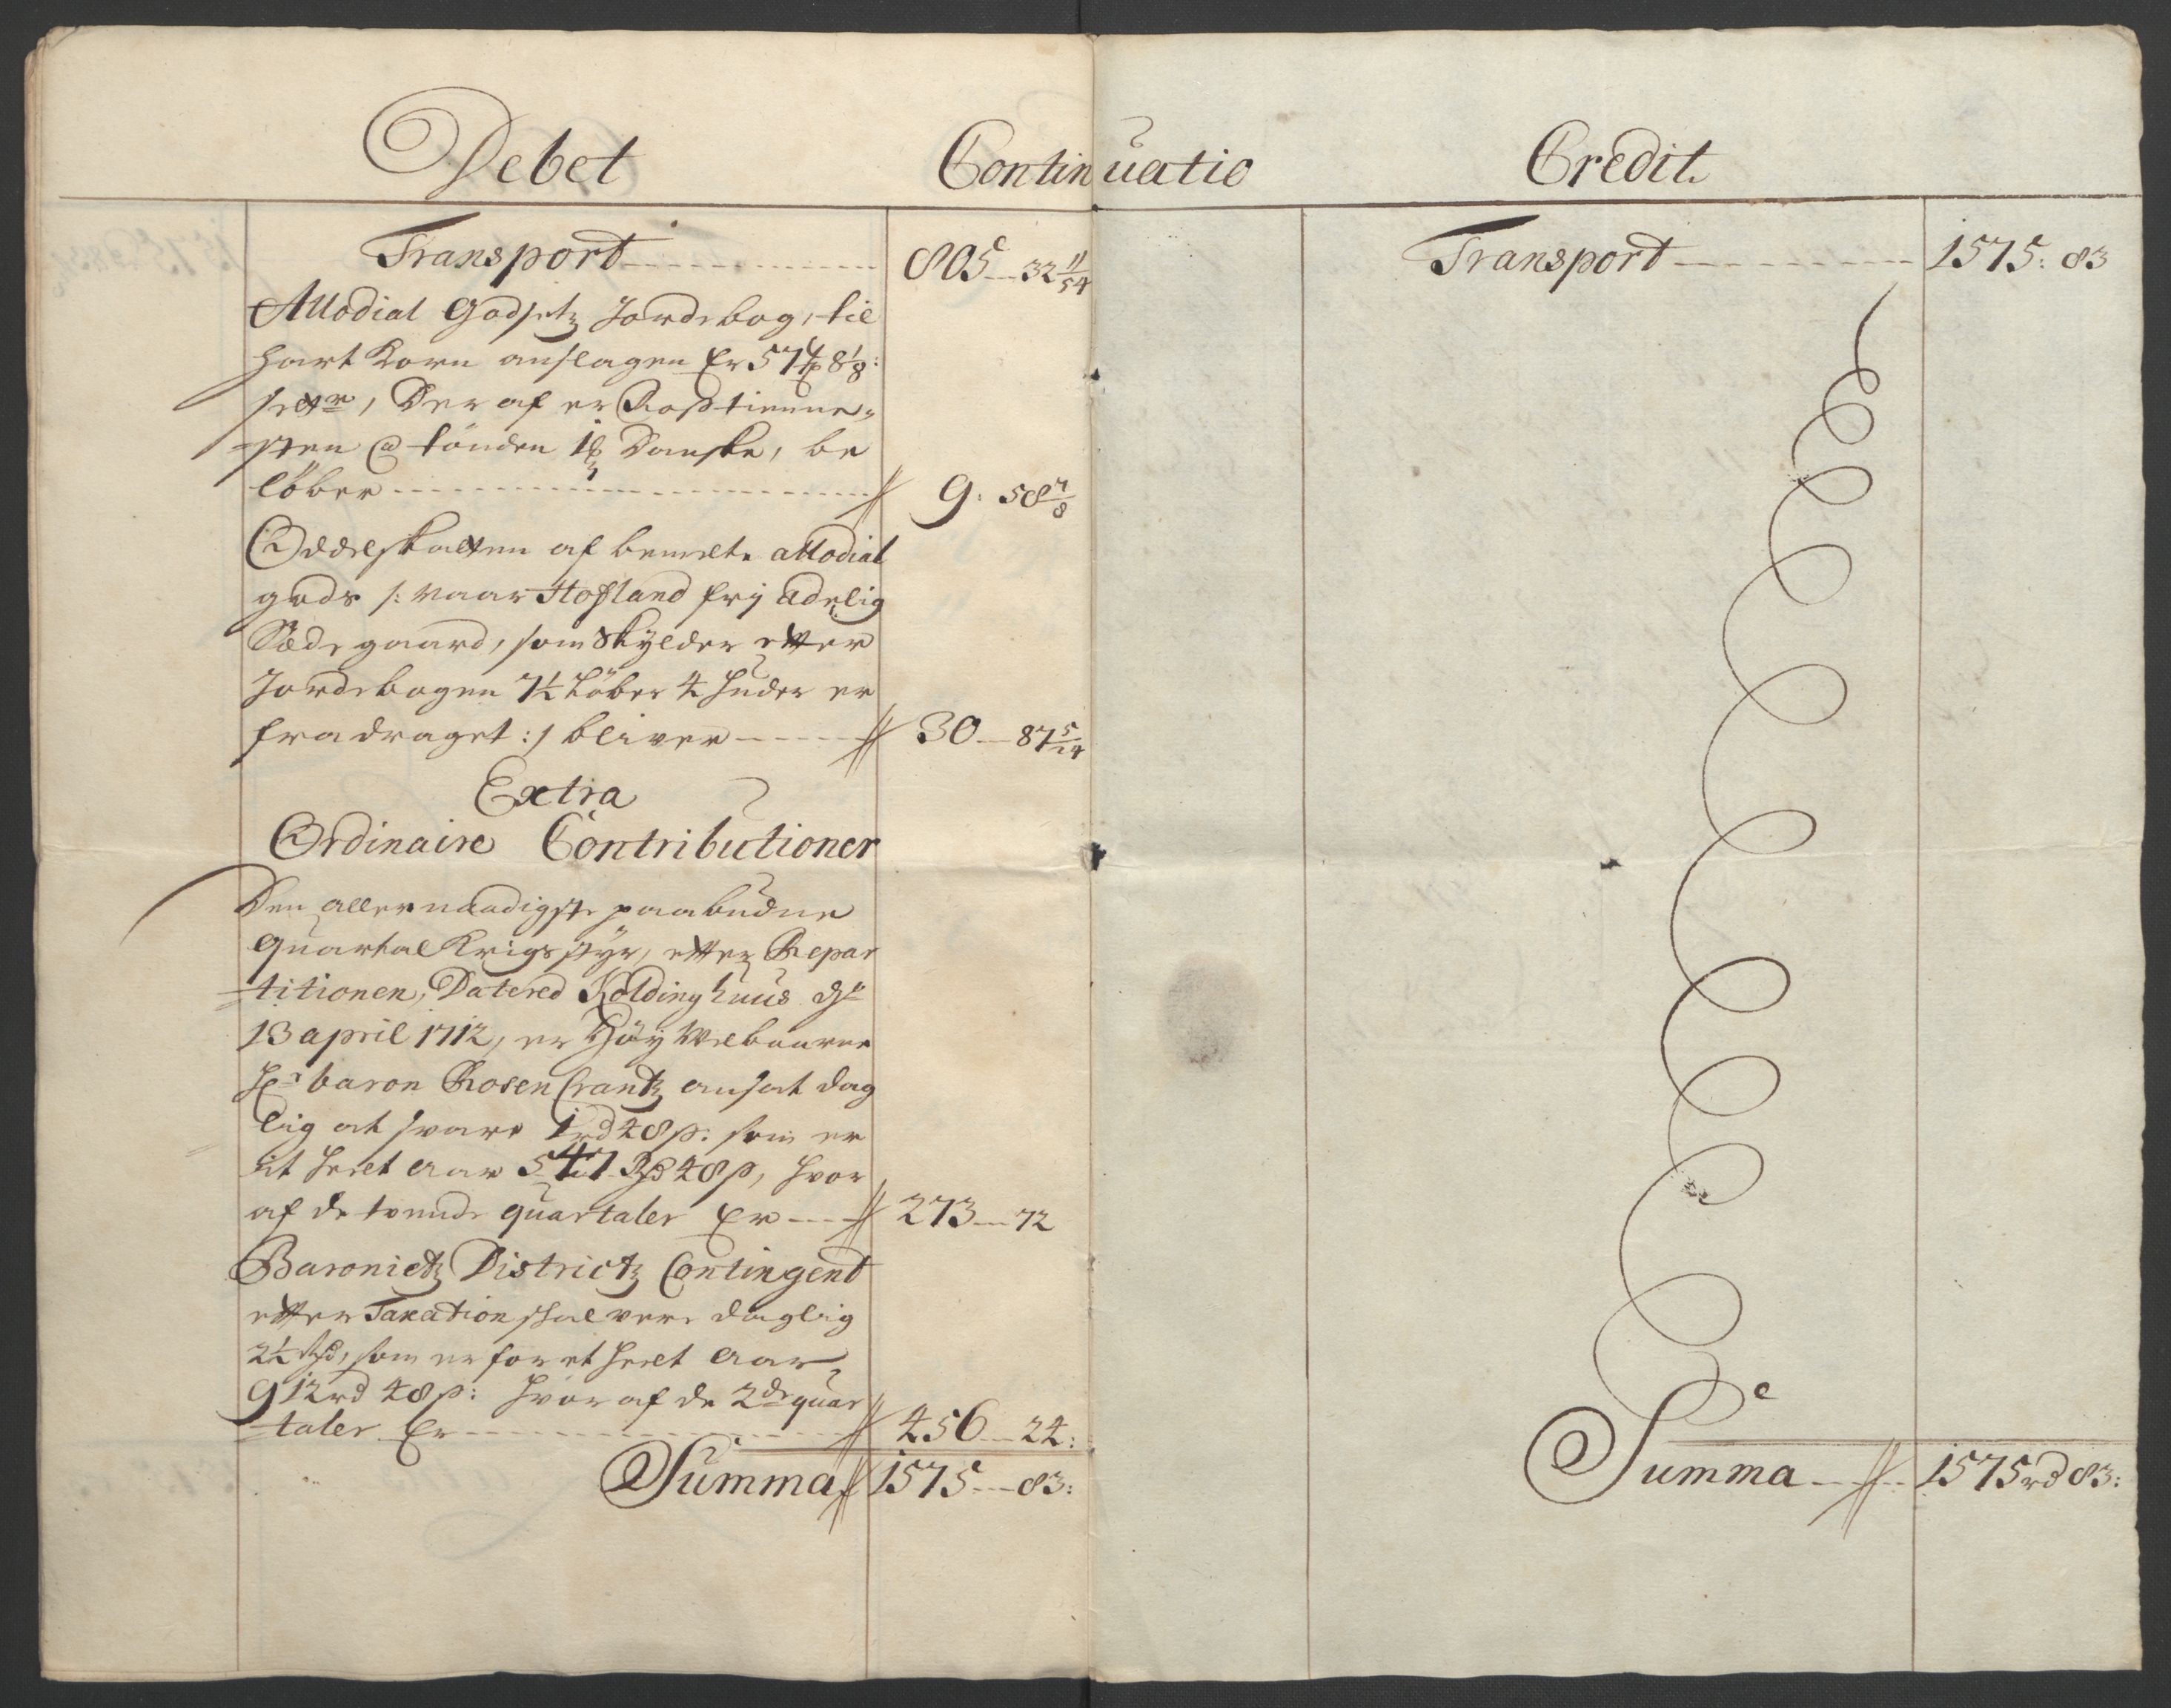 Debet
Continuatio
Credit
Transport 805 - 32 11/54
Allodial Godsetz Jordebog, til
Hart Korn anslagen Er 57 8 1/8:
Der af er Rosstienne-
sten @ tønden 1 Danske, be
løber 9: 58 7/8
Oddelskatten af bemelte allodial
gods /: naar Hofland frij adelig
Sædegaard, som skylder etter
Jordebogen 7½ Løber 4 Huder er
fradraget :/ bliver 30 - 87 5/24
Extra
Ordinaire Contributioner
Den allernaadigste paabudne
Quartal Krigsstyr, etter Repar
titionen, Datered Koldinghuus dn
13 april 1712, er Høy Welbaarne
Hr baron Rosen Crantz ansat dag
lig at svare 1 rd 48 s: som er
it heelt aar 547 Rd 48 s, hvor
af de tvende quartaler Er 273 - 72
Baronietz Districtz Contingent
etter Taxation skal vere daglig
2½ Rd, som er for et heelt aar
912 rd 48 s: hvor af de 2de quar
taler Er 456 - 24:
Summa 1575 - 83:
Transport 1575: 83
Summa 1575 rd 83: